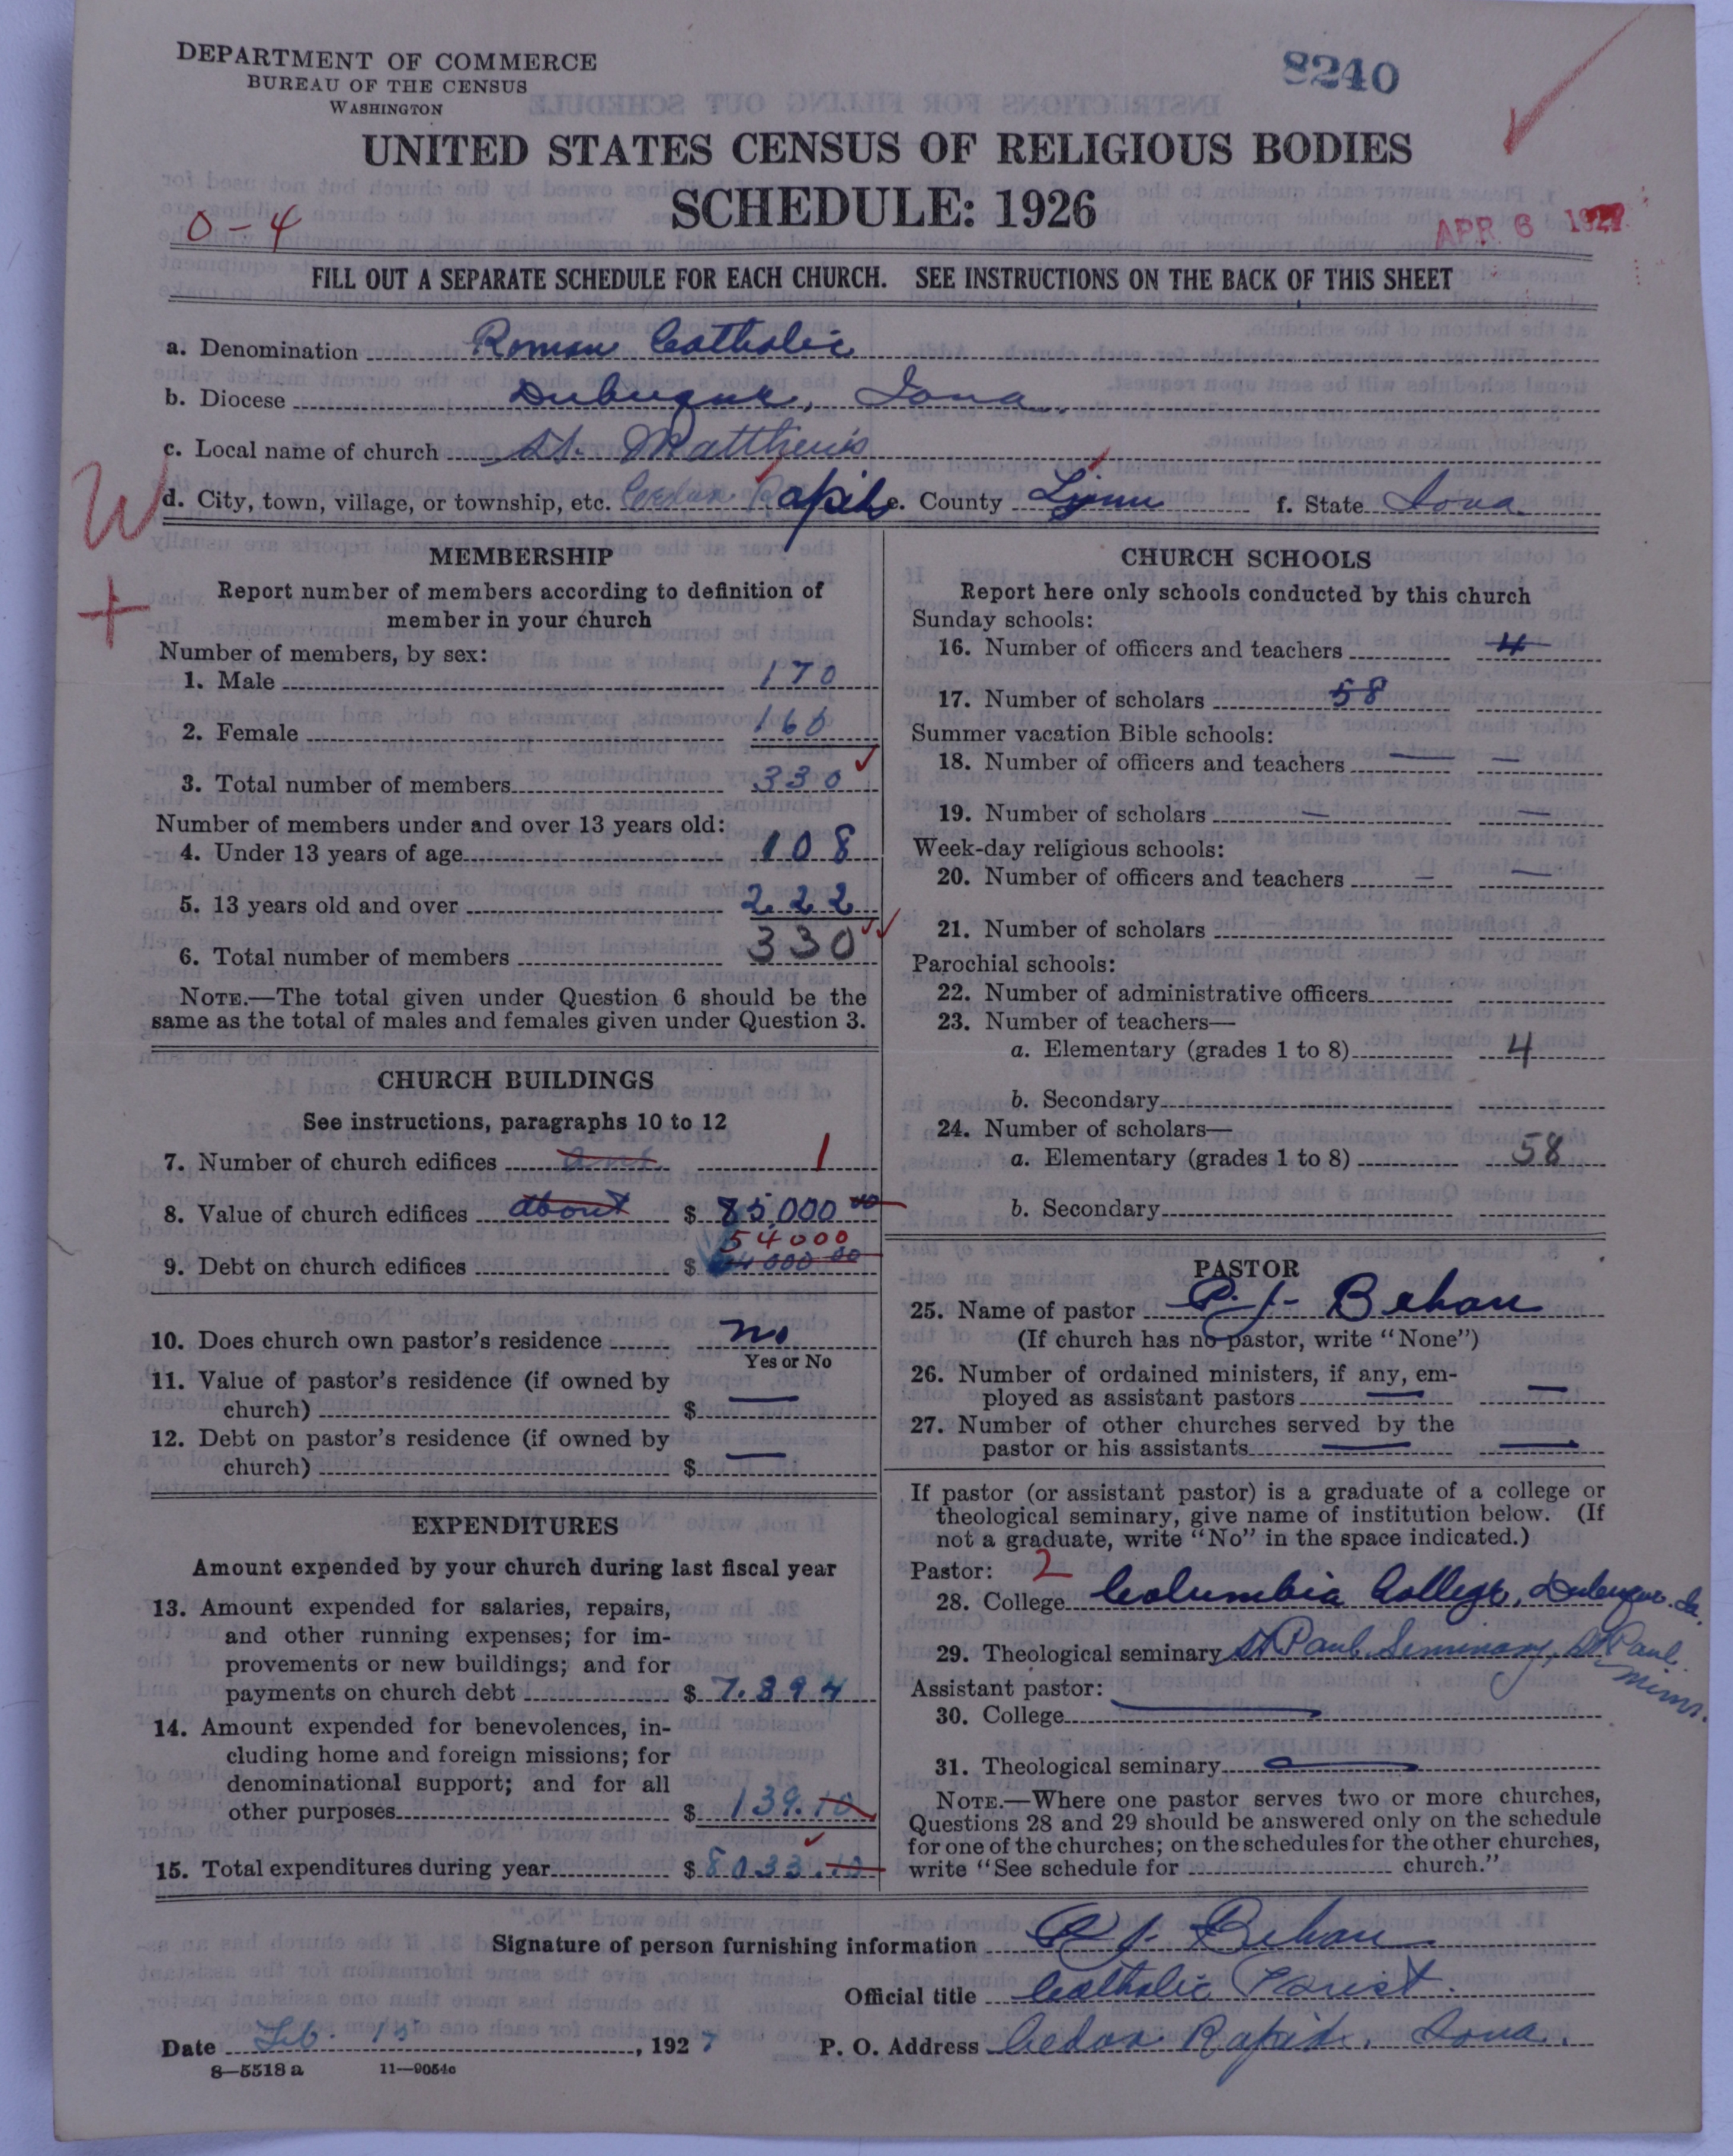 DEPARTMENT OF COMMERCE
BUREAU OF THE CENSUS
WASHINGTON
8240
UNITED STATES CENSUS OF RELIGIOUS BODIES
SCHEDULE: 1926
0-4
APR 6 1927
FILL OUT A SEPARATE SCHEDULE FOR EACH CHURCH. SEE INSTRUCTIONS ON THE BACK OF THIS SHEET
a. Denomination Roman Catholic
b. Diocese Dubuque, Iowa.
c. Local name of church St. Matthew's
W
d. City, town, village, or township, etc. Cedar Rapids e. County Linn f. State Iowa.
+
MEMBERSHIP
Report number of members according to definition of
member in your church
Number of members, by sex:
1. Male 170
2. Female 160
3. Total number of members 330
Number of members under and over 13 years old:
4. Under 13 years of age 108
5. 13 years old and over 222
6. Total number of members 330
NOTE.—The total given under Question 6 should be the
same as the total of males and females given under Question 3.
CHURCH BUILDINGS
See instructions, paragraphs 10 to 12
7. Number of church edifices 1
8. Value of church edifices about $ 85,000 00
54000
9. Debt on church edifices $ 54000 00
10. Does church own pastor's residence no
Yes or No
11. Value of pastor's residence (if owned by
church) $ —
12. Debt on pastor's residence (if owned by
church) $ —
EXPENDITURES
Amount expended by your church during last fiscal year
13. Amount expended for salaries, repairs,
and other running expenses; for im-
provements or new buildings; and for
payments on church debt $ 7.894
14. Amount expended for benevolences, in-
cluding home and foreign missions; for
denominational support; and for all
other purposes $ 139.10
15. Total expenditures during year $ 8033.10
CHURCH SCHOOLS
Report here only schools conducted by this church
Sunday schools:
16. Number of officers and teachers 4
17. Number of scholars 58
Summer vacation Bible schools:
18. Number of officers and teachers — —
19. Number of scholars — —
Week-day religious schools:
20. Number of officers and teachers — —
21. Number of scholars
Parochial schools:
22. Number of administrative officers
23. Number of teachers—
a. Elementary (grades 1 to 8) 4
b. Secondary
24. Number of scholars—
a. Elementary (grades 1 to 8) 58
b. Secondary
PASTOR
25. Name of pastor P. J. Behan
(If church has no pastor, write "None")
26. Number of ordained ministers, if any, em-
ployed as assistant pastors — —
27. Number of other churches served by the
pastor or his assistants — —
If pastor (or assistant pastor) is a graduate of a college or
theological seminary, give name of institution below. (If
not a graduate, write "No" in the space indicated.)
Pastor: 2
28. College Columbia College, Dubuque. Ia.
29. Theological seminary St Paul Seminary, St Paul.
Minn.
Assistant pastor:
30. College —
31. Theological seminary —
NOTE.—Where one pastor serves two or more churches,
Questions 28 and 29 should be answered only on the schedule
for one of the churches; on the schedules for the other churches,
write "See schedule for church."
Signature of person furnishing information P. J. Behan
Official title Catholic Priest.
Date Feb. 15, 1927 P. O. Address Cedar Rapids, Iowa.
8—5518 a 11—9054c